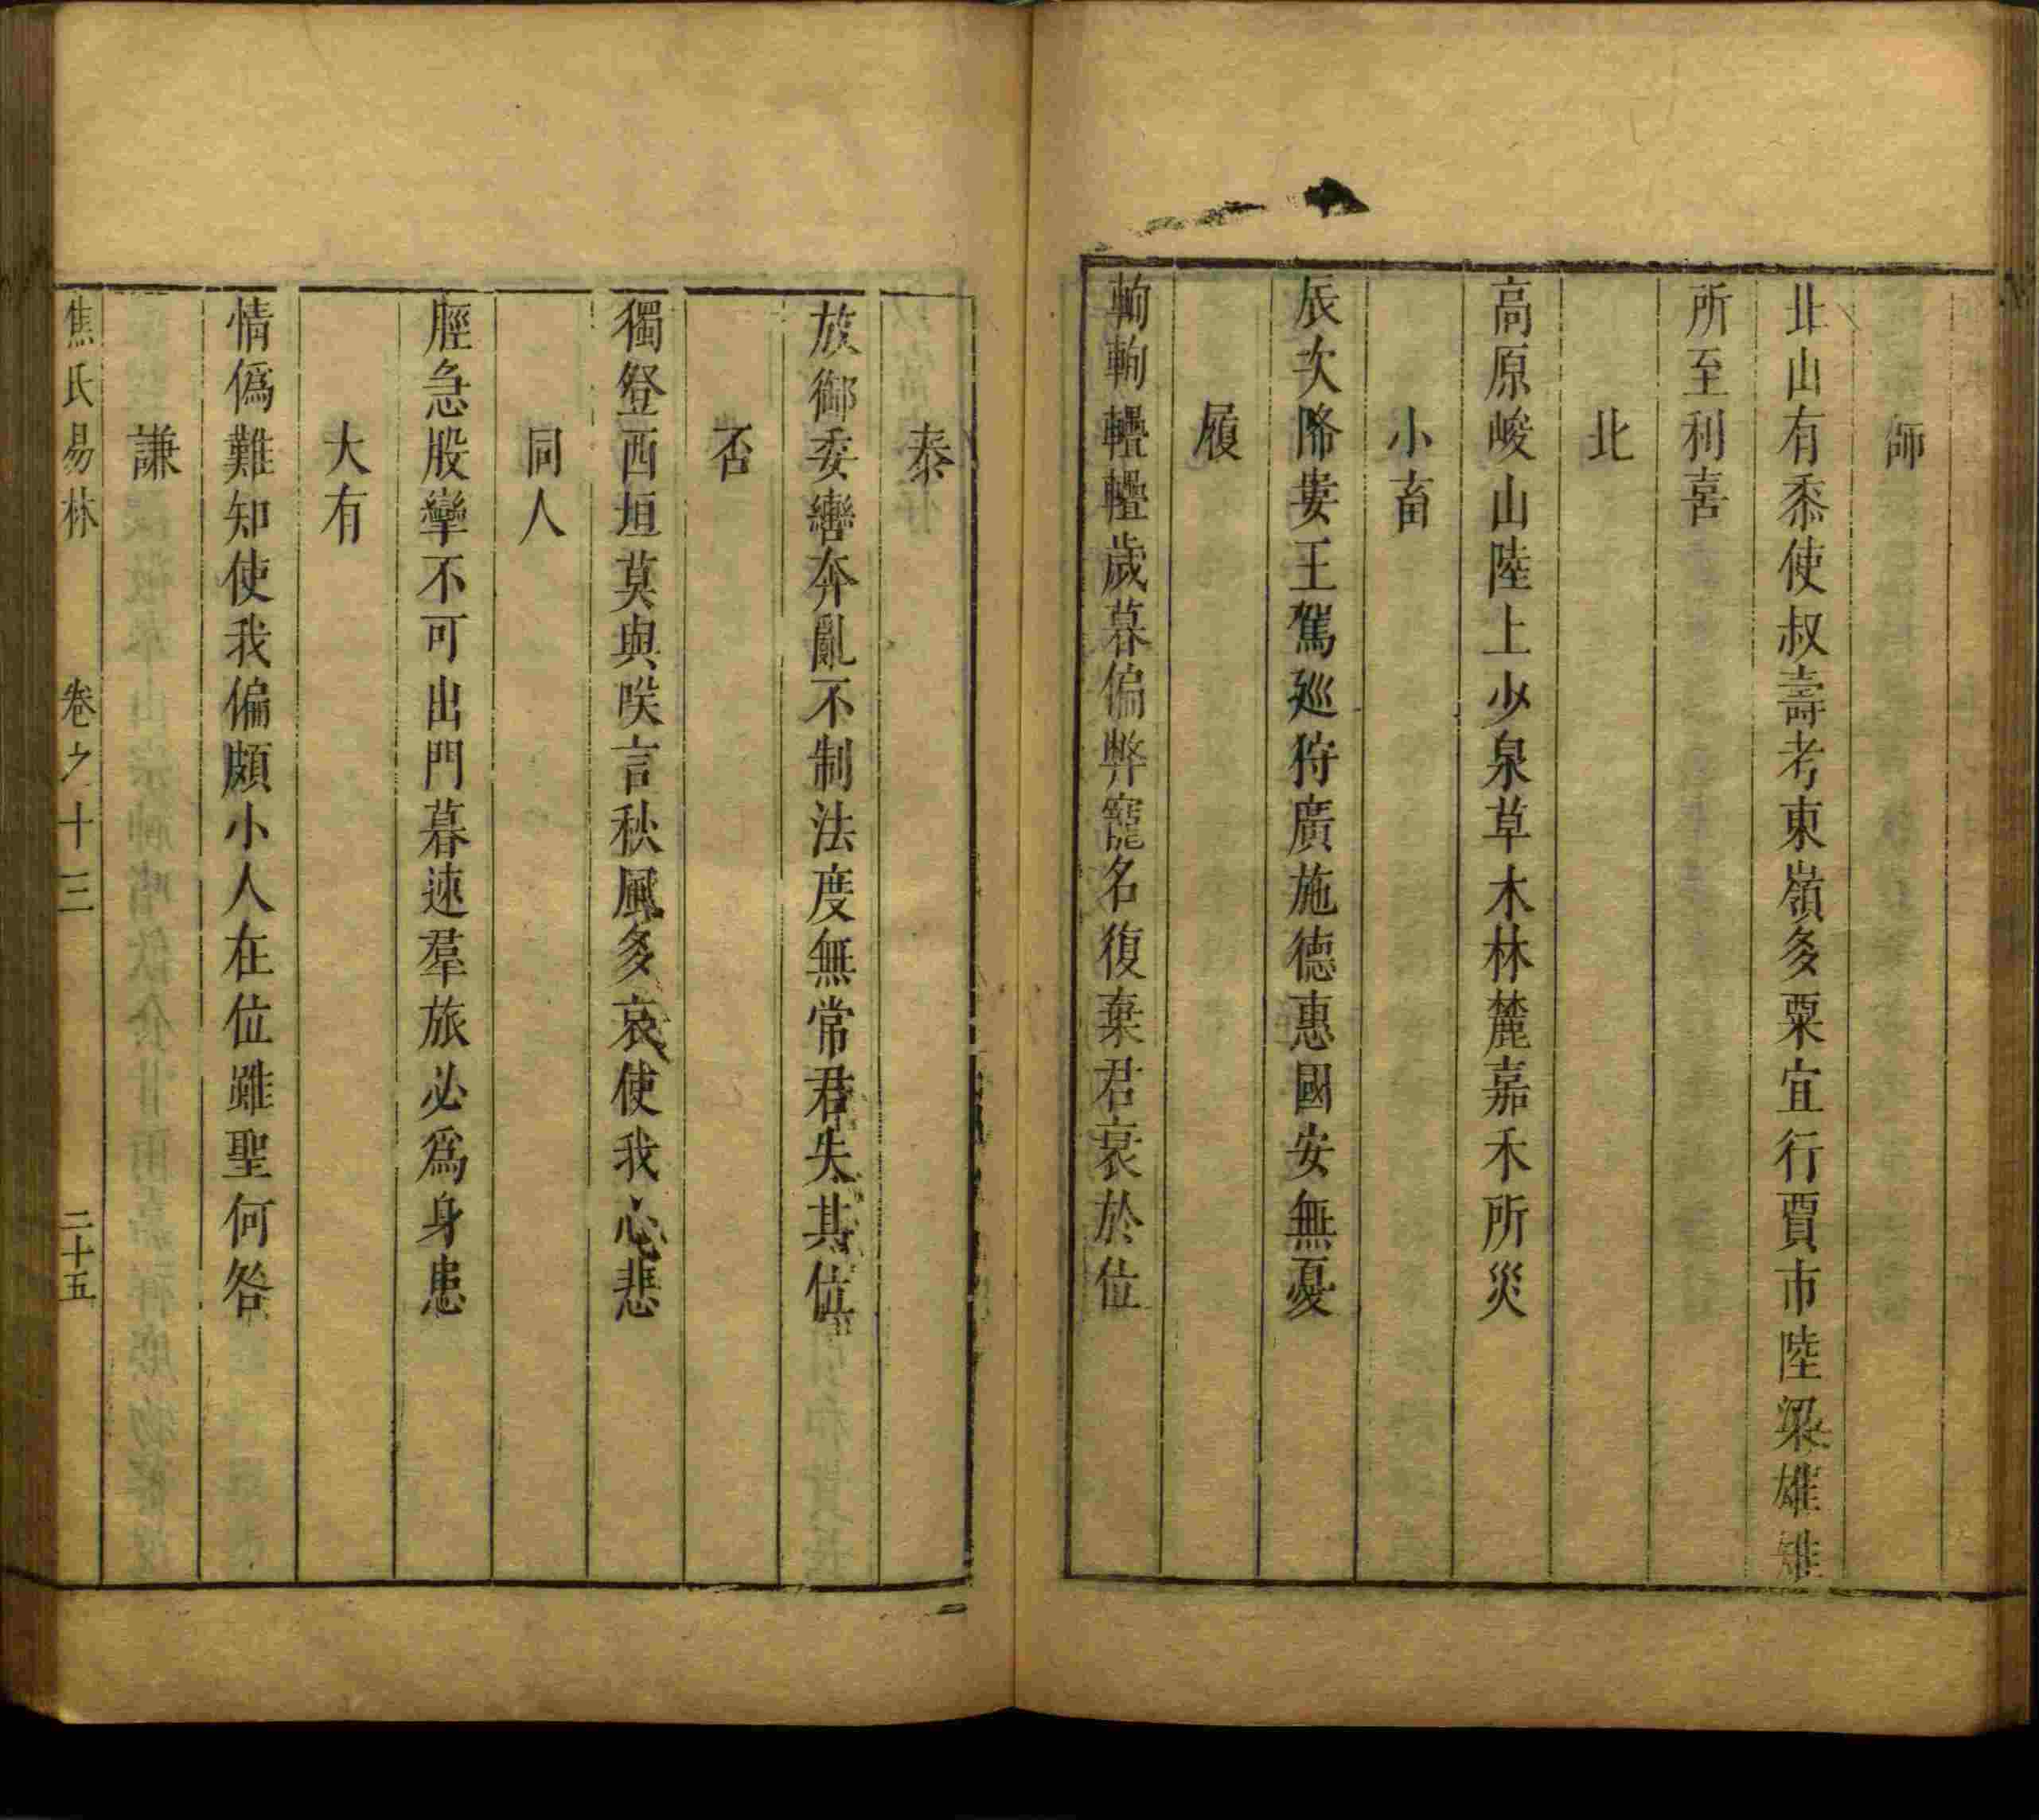 師
北山有黍使叔壽考東嶺多粟宜行賈市陸梁雄雉
所至利喜
北
高原峻山陸上少泉草木林麓嘉禾所災
小畜
辰次降婁王駕廵狩廣施德惠國安無憂
履
軥軥轠轠歲暮偏弊寵名復棄君衰於位
泰
放御委轡奔亂不制法度無常君失其位
否
獨登西垣莫與咲言秋風多哀使我心悲
同人
脛急股攣不可出門暮速羣旅必爲身患
大有
情僞難知使我偏頗小人在位雖聖何咎
謙
焦氏易林 卷之十三 二十五